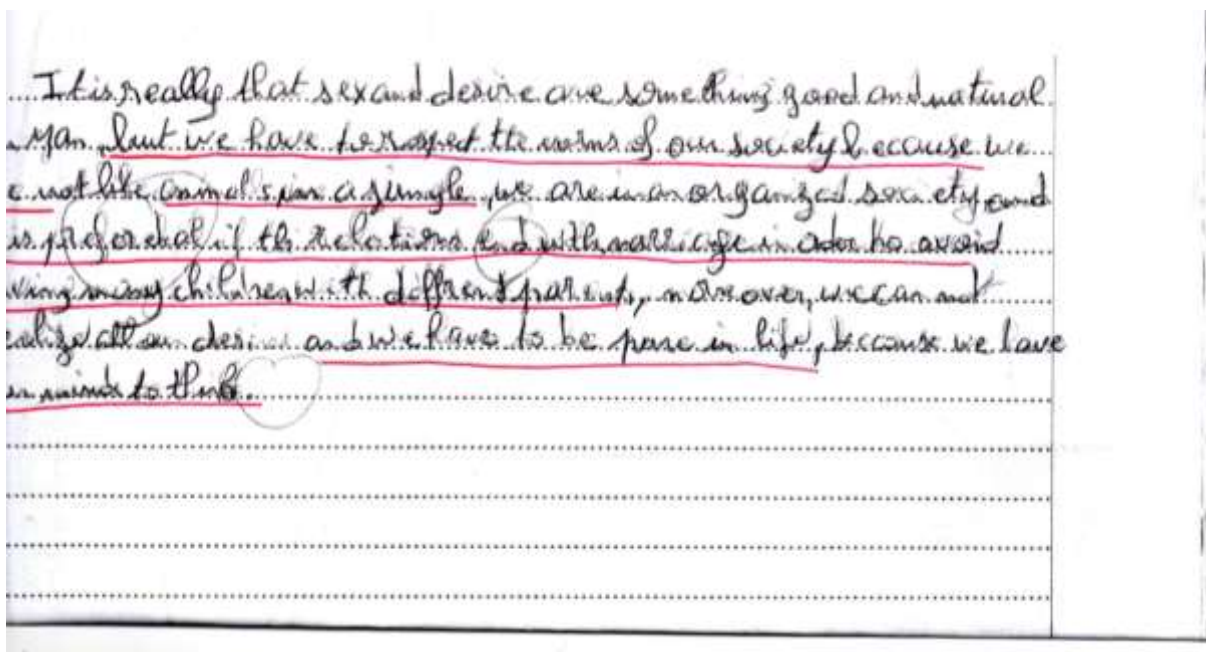 It is really that sex and desire are something good and natural
Man, but we have to respect the norms of our society because we
not like animals in a jungle, we are in an organized society and
is preferabal if the relations end with marriage in order to avoid
ving many children with diffrent parents, moreover, we can not
alize all our desires and we have to be pure in life, because we have
minds to think.